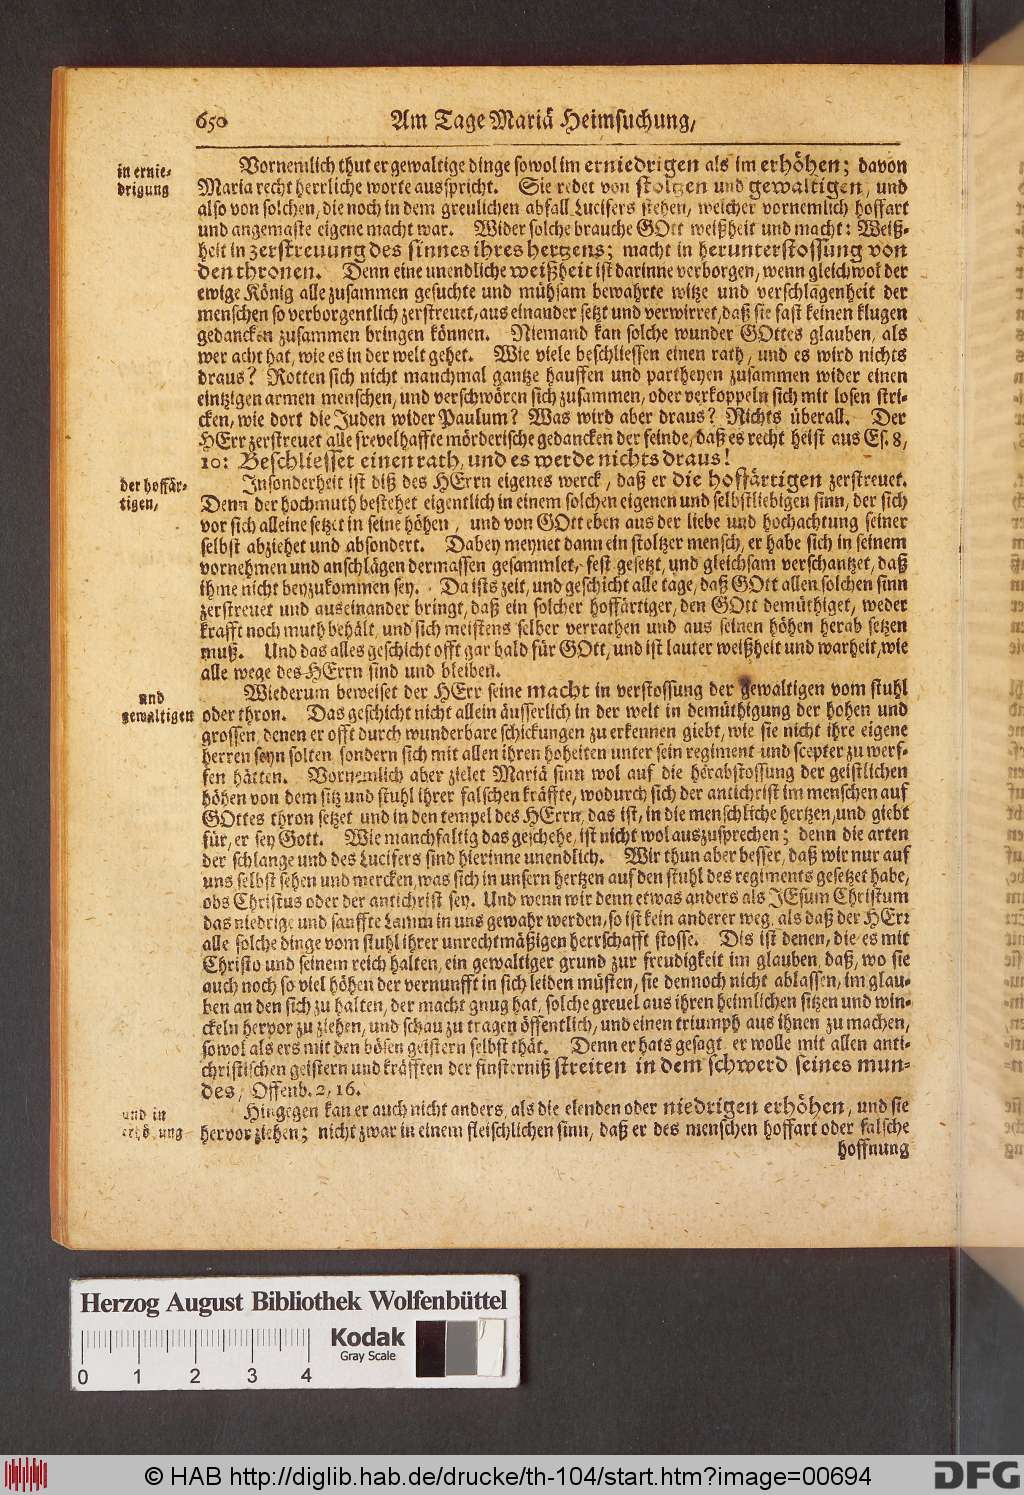 650 Am Tage Mariä Heimsuchung,
in ernie-
drigung
Vornemlich thut er gewaltige dinge sowol im erniedrigen als im erhöhen; davon
Maria recht herrliche worte ausspricht. Sie redet von stoltzen und gewaltigen, und
also von solchen, die noch in dem greulichen abfall Lucifers stehen, welcher vornemlich hoffart
und angemaste eigene macht war. Wider solche brauche GOtt weißheit und macht: Weiß-
heit in zerstreuung des sinnes ihres hertzens; macht in herunterstossung von
den thronen. Denn eine unendliche weißheit ist darinne verborgen, wenn gleichwol der
ewige König alle zusammen gesuchte und mühsam bewahrte witze und verschlagenheit der
menschen so verborgentlich zerstreuet, aus einander setzt und verwirret, daß sie fast keinen klugen
gedancken zusammen bringen können. Niemand kan solche wunder GOttes glauben, als
wer acht hat, wie es in der welt gehet. Wie viele beschliessen einen rath, und es wird nichts
draus? Rotten sich nicht manchmal gantze hauffen und partheyen zusammen wider einen
eintzigen armen menschen, und verschwören sich zusammen, oder verkoppeln sich mit losen stri-
cken, wie dort die Juden wider Paulum? Was wird aber draus? Nichts überall. Der
HErr zerstreuet alle frevelhaffte mörderische gedancken der feinde, daß es recht heist aus Es. 8,
10: Beschliesset einen rath, und es werde nichts draus!
der hoffär-
tigen,
Insonderheit ist diß des HErrn eigenes werck, daß er die hoffärtigen zerstreuet.
Denn der hochmuth bestehet eigentlich in einem solchen eigenen und selbstliebigen sinn, der sich
vor sich alleine setzet in seine höhen, und von GOtt eben aus der liebe und hochachtung seiner
selbst abziehet und absondert. Dabey meynet dann ein stoltzer mensch, er habe sich in seinem
vornehmen und anschlägen dermassen gesammlet, fest gesetzt, und gleichsam verschantzet, daß
ihme nicht beyzukommen sey. Da ists zeit, und geschicht alle tage, daß GOtt allen solchen sinn
zerstreuet und auseinander bringt, daß ein solcher hoffärtiger, den GOtt demüthiget, weder
krafft noch muth behält, und sich meistens selber verrathen und aus seinen höhen herab setzen
muß. Und das alles geschicht offt gar bald für GOtt, und ist lauter weißheit und warheit, wie
alle wege des HErrn sind und bleiben.
und
gewaltigen
Wiederum beweiset der HErr seine macht in verstossung der gewaltigen vom stuhl
oder thron. Das geschicht nicht allein äusserlich in der welt in demüthigung der hohen und
grossen, denen er offt durch wunderbare schickungen zu erkennen giebt, wie sie nicht ihre eigene
herren seyn solten, sondern sich mit allen ihren hoheiten unter sein regiment und scepter zu werf-
fen hätten. Vornemlich aber zielet Mariä sinn wol auf die herabstossung der geistlichen
höhen von dem sitz und stuhl ihrer falschen kräffte, wodurch sich der antichrist im menschen auf
GOttes thron setzet und in den tempel des HErrn, das ist, in die menschliche hertzen, und giebt
für, er sey Gott. Wie manchfaltig das geschehe, ist nicht wol auszusprechen; denn die arten
der schlange und des Lucifers sind hierinne unendlich. Wir thun aber besser, daß wir nur auf
uns selbst sehen und mercken, was sich in unsern hertzen auf den stuhl des regiments gesetzet habe,
obs Christus oder der antichrist sey. Und wenn wir denn etwas anders als JEsum Christum
das niedrige und sanffte Lamm in uns gewahr werden, so ist kein anderer weg, als daß der HErr
alle solche dinge vom stuhl ihrer unrechtmäßigen herrschafft stosse. Dis ist denen, die es mit
Christo und seinem reich halten, ein gewaltiger grund zur freudigkeit im glauben, daß, wo sie
auch noch so viel höhen der vernunfft in sich leiden müsten, sie dennoch nicht ablassen, im glau-
ben an den sich zu halten, der macht gnug hat, solche greuel aus ihren heimlichen sitzen und win-
ckeln hervor zu ziehen, und schau zu tragen öffentlich, und einen triumph aus ihnen zu machen,
sowol als ers mit den bösen geistern selbst thät. Denn er hats gesagt, er wolle mit allen anti-
christischen geistern und kräfften der finsterniß streiten in dem schwerd seines mun-
des, Offenb. 2, 16.
und in
erhöhung
Hingegen kan er auch nicht anders, als die elenden oder niedrigen erhöhen, und sie
hervor ziehen; nicht zwar in einem fleischlichen sinn, daß er des menschen hoffart oder falsche
hoffnung
Herzog August Bibliothek Wolfenbüttel
Kodak
Gray Scale
0 1 2 3 4
© HAB http://diglib.hab.de/drucke/th-104/start.htm?image=00694
DFG